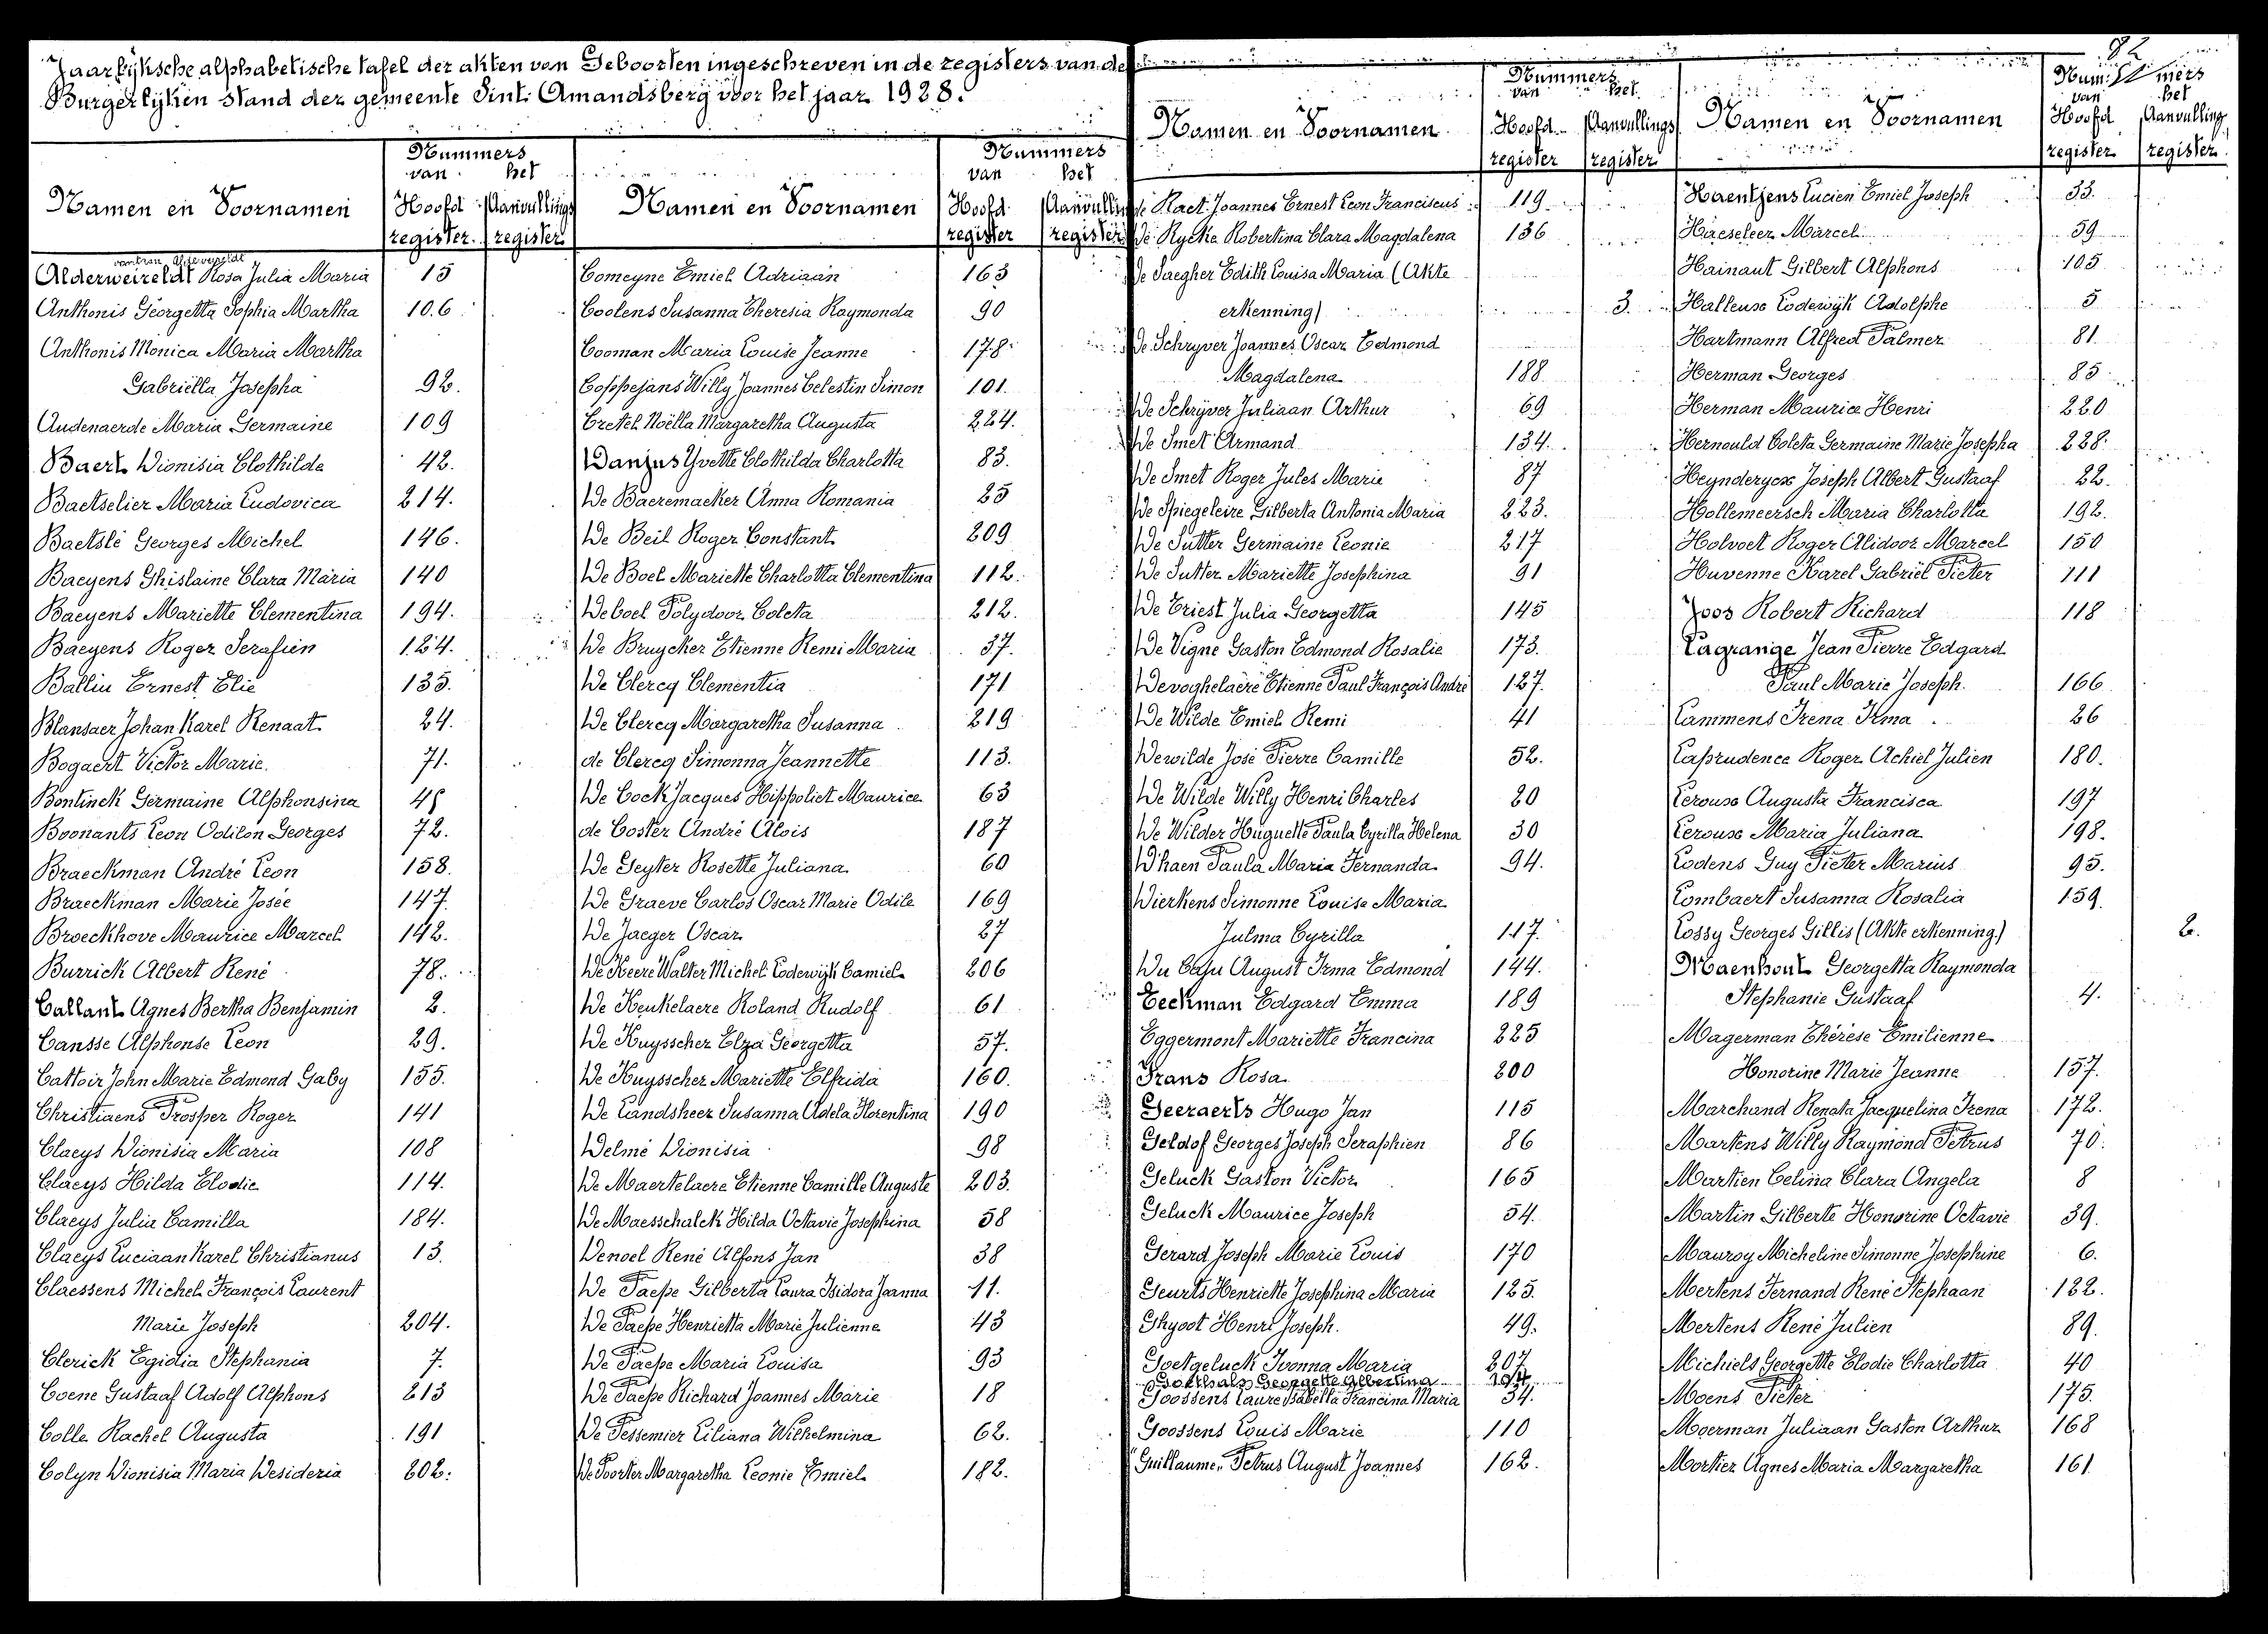 Jaarlijksche alphabetische tafel der akten van Geboorten ingeschreven in de registers van de
Burgerlijken stand der gemeente Sint Amandsberg voor het jaar 1928.
Namen en Voornamen
Nummers
van het
Hoofd Aanvullings
register register
Alderweireldt Rosa Julia Maria 15
Anthonis Georgetta Sophia Martha 106
Anthonis Monica Maria Martha
Gabriëlla Josepha 92.
Audenaerde Maria Germaine 109
Baert Dionisia Clothilde 42.
Baetselier Maria Ludovica 214.
Baetslé Georges Michel 146.
Baeyens Ghislaine Clara Maria 140
Baeyens Mariette Clementina 194.
Baeyens Roger Serafien 124.
Balliu Ernest Elie 135.
Blansaer Johan Karel Renaat 24.
Bogaert Victor Marie 71.
Bontinck Germaine Alphonsina 45
Boonants Leon Odilon Georges 72.
Braeckman André Leon 158.
Braeckman Marie Josée 147.
Broeckhove Maurice Marcel 142.
Burrick Albert René 78.
Callant Agnes Bertha Benjamin 2.
Cansse Alphonse Leon 29.
Cattoir John Marie Edmond Gaby 155.
Christiaens Prosper Roger 141
Claeys Dionisia Maria 108
Claeys Hilda Elodie 114.
Claeys Julia Camilla 184.
Claeys Luciaan Karel Christianus 13.
Claessens Michel François Laurent
Marie Joseph 204.
Clerick Egidia Stephania 7.
Coene Gustaaf Adolf Alphons 213
Colle Rachel Augusta 191
Colyn Dionisia Maria Desideria 202.
Namen en Voornamen
Nummers
van het
Hoofd Aanvullings
register register
Comeyne Emiel Adriaan 163
Coolens Susanna Theresia Raymonda 90
Cooman Maria Louise Jeanne 178.
Coppejans Willy Joannes Celestin Simon 101.
Cretel Noëlla Margaretha Augusta 224.
Danjus Yvette Clothilda Charlotta 83.
De Baeremacker Anna Romania 25
De Beil Roger Constant 209
De Boel Mariette Charlotta Clementina 112.
Deboel Polydoor Coleta 212.
De Bruycker Etienne Remi Maria 37.
De Clercq Clementia 171
De Clercq Margaretha Susanna 219
de Clercq Simonna Jeannette 113.
De Cock Jacques Hippoliet Maurice 63
de Coster André Alois 187
De Geyter Rosette Juliana 60
De Graeve Carlos Oscar Marie Odile 169
De Jaeger Oscar 27
De Keere Walter Michel Lodewijk Camiel 206
De Keukelaere Roland Rudolf 61
De Kuysscher Elza Georgetta 57.
De Kuysscher Mariette Elfrida 160.
De Landsheer Susanna Adela Florentina 190
Delmé Dionisia 98
De Maertelaere Etienne Camille Auguste 203.
De Maesschalck Hilda Octavie Josephina 58
Denoel René Alfons Jan 38
De Paepe Gilberta Laura Isidora Joanna 11.
De Paepe Henrietta Marie Julienne 43
De Paepe Maria Louisa 93
De Paepe Richard Joannes Marie 18
De Pessemier Liliana Wilhelmina 62.
De Poorter Margaretha Leonie Emiel 182.
Namen en Voornamen
Nummers
van het
Hoofd Aanvullings
register register
de Raet Joannes Ernest Leon Franciscus 119
De Rycke Robertina Clara Magdalena 136
De Saegher Edith Louisa Maria (Akte
erkenning) 3.
De Schryver Joannes Oscar Edmond
Magdalena 188
De Schryver Juliaan Arthur 69
De Smet Armand 134.
De Smet Roger Jules Marie 87
De Spiegeleire Gilberta Antonia Maria 223.
De Sutter Germaine Leonie 217
De Sutter Mariette Josephina 91
De Triest Julia Georgetta 145
De Vigne Gaston Edmond Rosalie 173.
Devoghelaere Etienne Paul François André 127.
De Wilde Emiel Remi 41
Dewilde José Pierre Camille 52.
De Wilde Willy Henri Charles 20
De Wilder Huguette Paula Cyrilla Helena 30
D'haen Paula Maria Fernanda 94.
Dierkens Simonne Louise Maria
Julma Cyrilla 117.
Du Caju August Irma Edmond 144.
Eeckman Edgard Emma 189
Eggermont Mariette Francina 225
Frans Rosa 200
Geeraerts Hugo Jan 115
Geldof Georges Joseph Seraphien 86
Geluck Gaston Victor 165
Geluck Maurice Joseph 54.
Gerard Joseph Marie Louis 170
Geurts Henriette Josephina Maria 125.
Ghyoot Henri Joseph. 49.
Goetgeluck Ivonna Maria 207
Goethals Georgette Albertina
Goossens Laure Isabella Francina Maria 34.
Goossens Louis Marie 110
Guillaume, Petrus August Joannes 162.
82
Namen en Voornamen
Nummers
van het
Hoofd Aanvulling
register register
Haentjens Lucien Emiel Joseph 33.
Haeseleer Marcel 59
Hainaut Gilbert Alphons 105
Halleux Lodewijk Adolphe 5
Hartmann Alfred Palmer 81
Herman Georges 85
Herman Maurice Henri 220
Hernould Coleta Germaine Marie Josepha 228.
Heynderyckx Joseph Albert Gustaaf 22.
Hollemeersch Maria Charlotta 192.
Holvoet Roger Alidoor Marcel 150
Huvenne Karel Gabriël Pieter 111
Joos Robert Richard 118
Lagrange Jean Pierre Edgard
Paul Marie Joseph. 166
Lammens Irena Irma 26
Laprudence Roger Achiel Julien 180.
Leroux Augusta Francisca 197
Leroux Maria Juliana 198.
Lodens Guy Pieter Marius 95.
Lombaert Susanna Rosalia 159
Lossy Georges Gillis (Akte erkenning) 2.
Maenhout Georgetta Raymonda
Stephanie Gustaaf 4.
Magerman Thérèse Emilienne
Honorine Marie Jeanne 157.
Marchand Renata Jacquelina Irena 172.
Martens Willy Raymond Petrus 70.
Martien Celina Clara Angela 8
Martin Gilberte Honorine Octavie 39.
Mauroy Micheline Simonne Josephine 6.
Mertens Fernand René Stephaan 132.
Mertens René Julien 89.
Michiels Georgette Elodie Charlotta 40
Moens Pieter 175.
Moerman Juliaan Gaston Arthur 168
Mortier Agnes Maria Margaretha 161